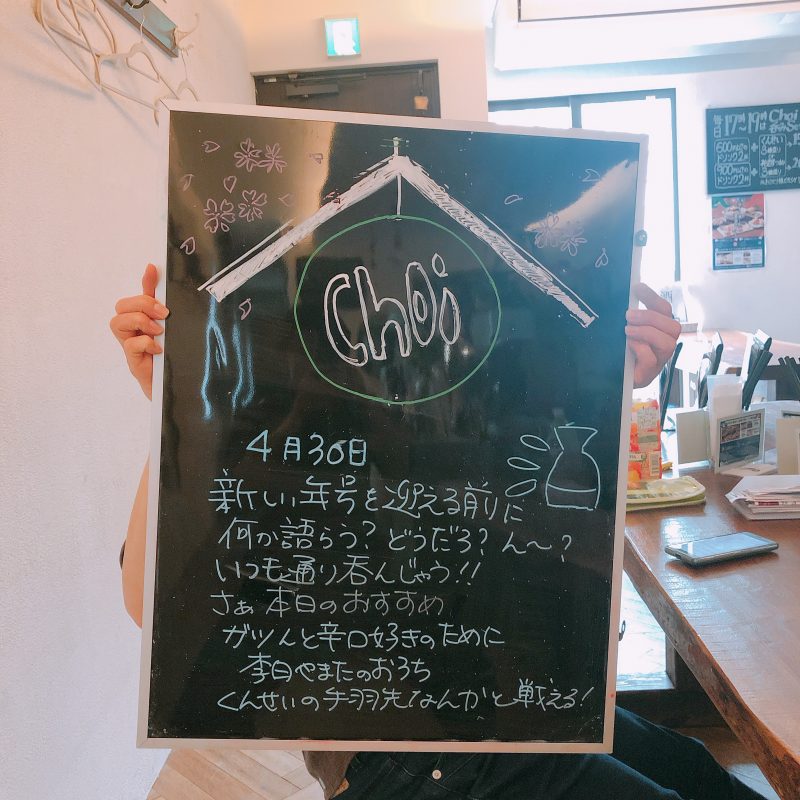 Choi
4月30日
新しい年号を迎える前に
何か語らう?どうだろ?ん〜?
いつも通り呑んじゃう!!
さぁ本日のおすすめ
ガツんと辛口好きのために
李白やまたのおろち
くんせいの手羽先なんかと戦える!
毎日17時〜19時 Choi
600円
ドリンク2杯
900円
ドリンク2杯